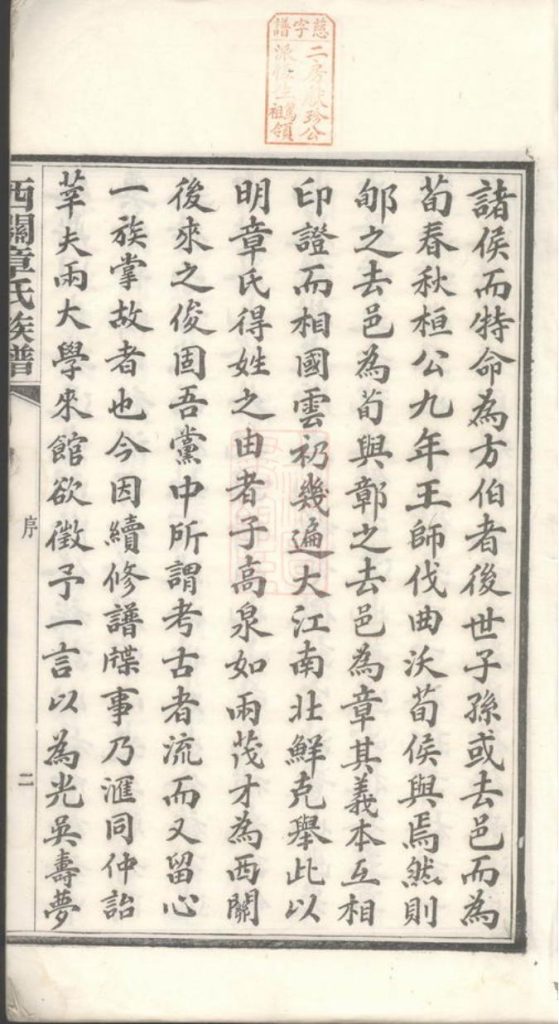 慈字譜
二房
公
祖領
諸侯而特命為方伯者後世子孫或去邑而為
荀春秋桓公九年王師伐曲沃荀侯與焉然則
郇之去邑為荀與鄣之去邑為章其義本互相
印證而相國雲礽幾遍大江南北鮮克舉此以
明章氏得姓之由者子高泉如兩茂才為西關
後來之俊固吾黨中所謂考古者流而又留心
一族掌故者也今因續修譜牒事乃滙同仲詒
莘夫兩大學來館欲徵予一言以為光吳壽夢
西關章氏族譜
序
二